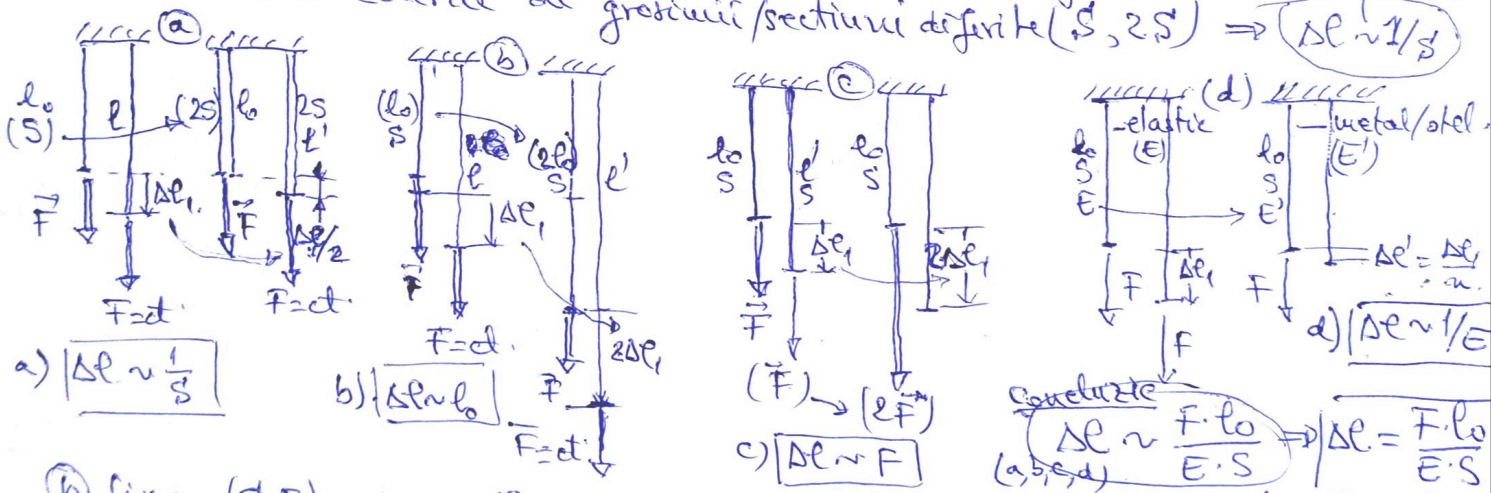 de grosimi/sectiuni diferite (S, 2S) ⇒ Δl ~ 1/S
a
l₀
(S)
l
(2S)
l₀
2S
l'
Δl₁
F
F
Δl₁/2
F=ct.
F=ct.
a) Δl ~ 1/S
b
(l₀)
S
l
(2l₀)
S
l'
Δl₁
F
F=ct.
2Δl₁
F
F=ct.
b) Δl ~ l₀
c
l₀
S
l'
S
l₀
S
Δl₁
2Δl₁
F
(F) → (2F)
c) Δl ~ F
(d)
- elastic
(E)
- metal/otel.
(E')
l₀
S
E
l₀
S
E'
Δl₁
F
F
F
Δl' = Δl₁/n
d) Δl ~ 1/E
Concluzie
Δl ~ F·l₀/E·S ⇒ Δl = F·l₀/E·S
(a,b,c,d)